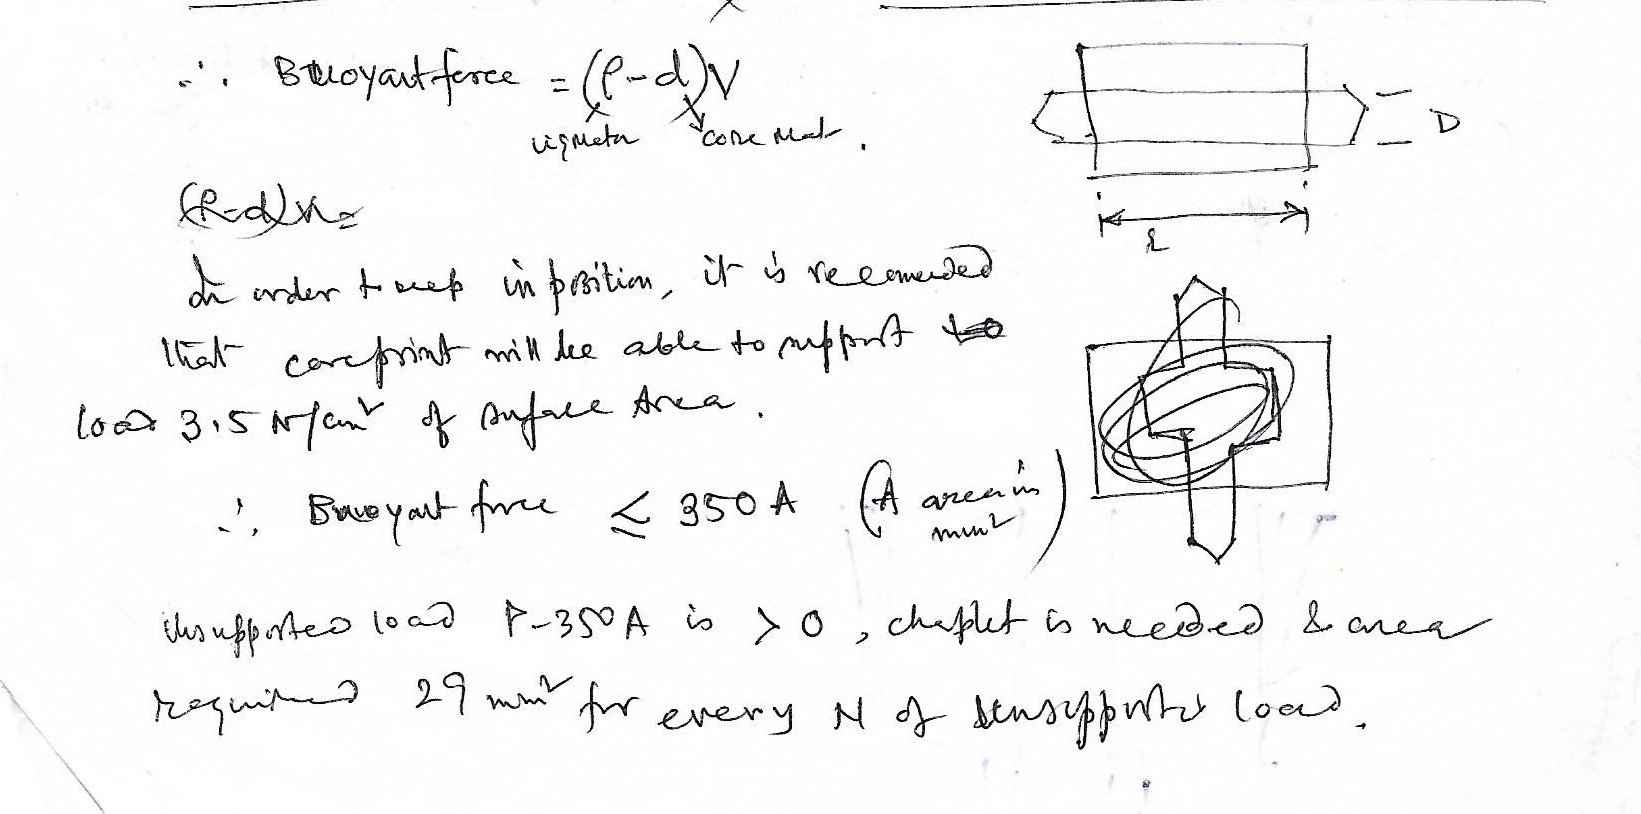 ∴ Buoyant force = (ρ-d)V
liq metal core mat.
D
(ρ-d)V=
l
In order to keep in position, it is recomended
that coreprint will be able to support to
load 3.5 N/cm² of surface Area.
∴ Buoyant force ≤ 350 A (A area in
mm²)
Unsupported load P-350A is > 0, chaplet is needed & area
required 29 mm² for every N of unsupported load.